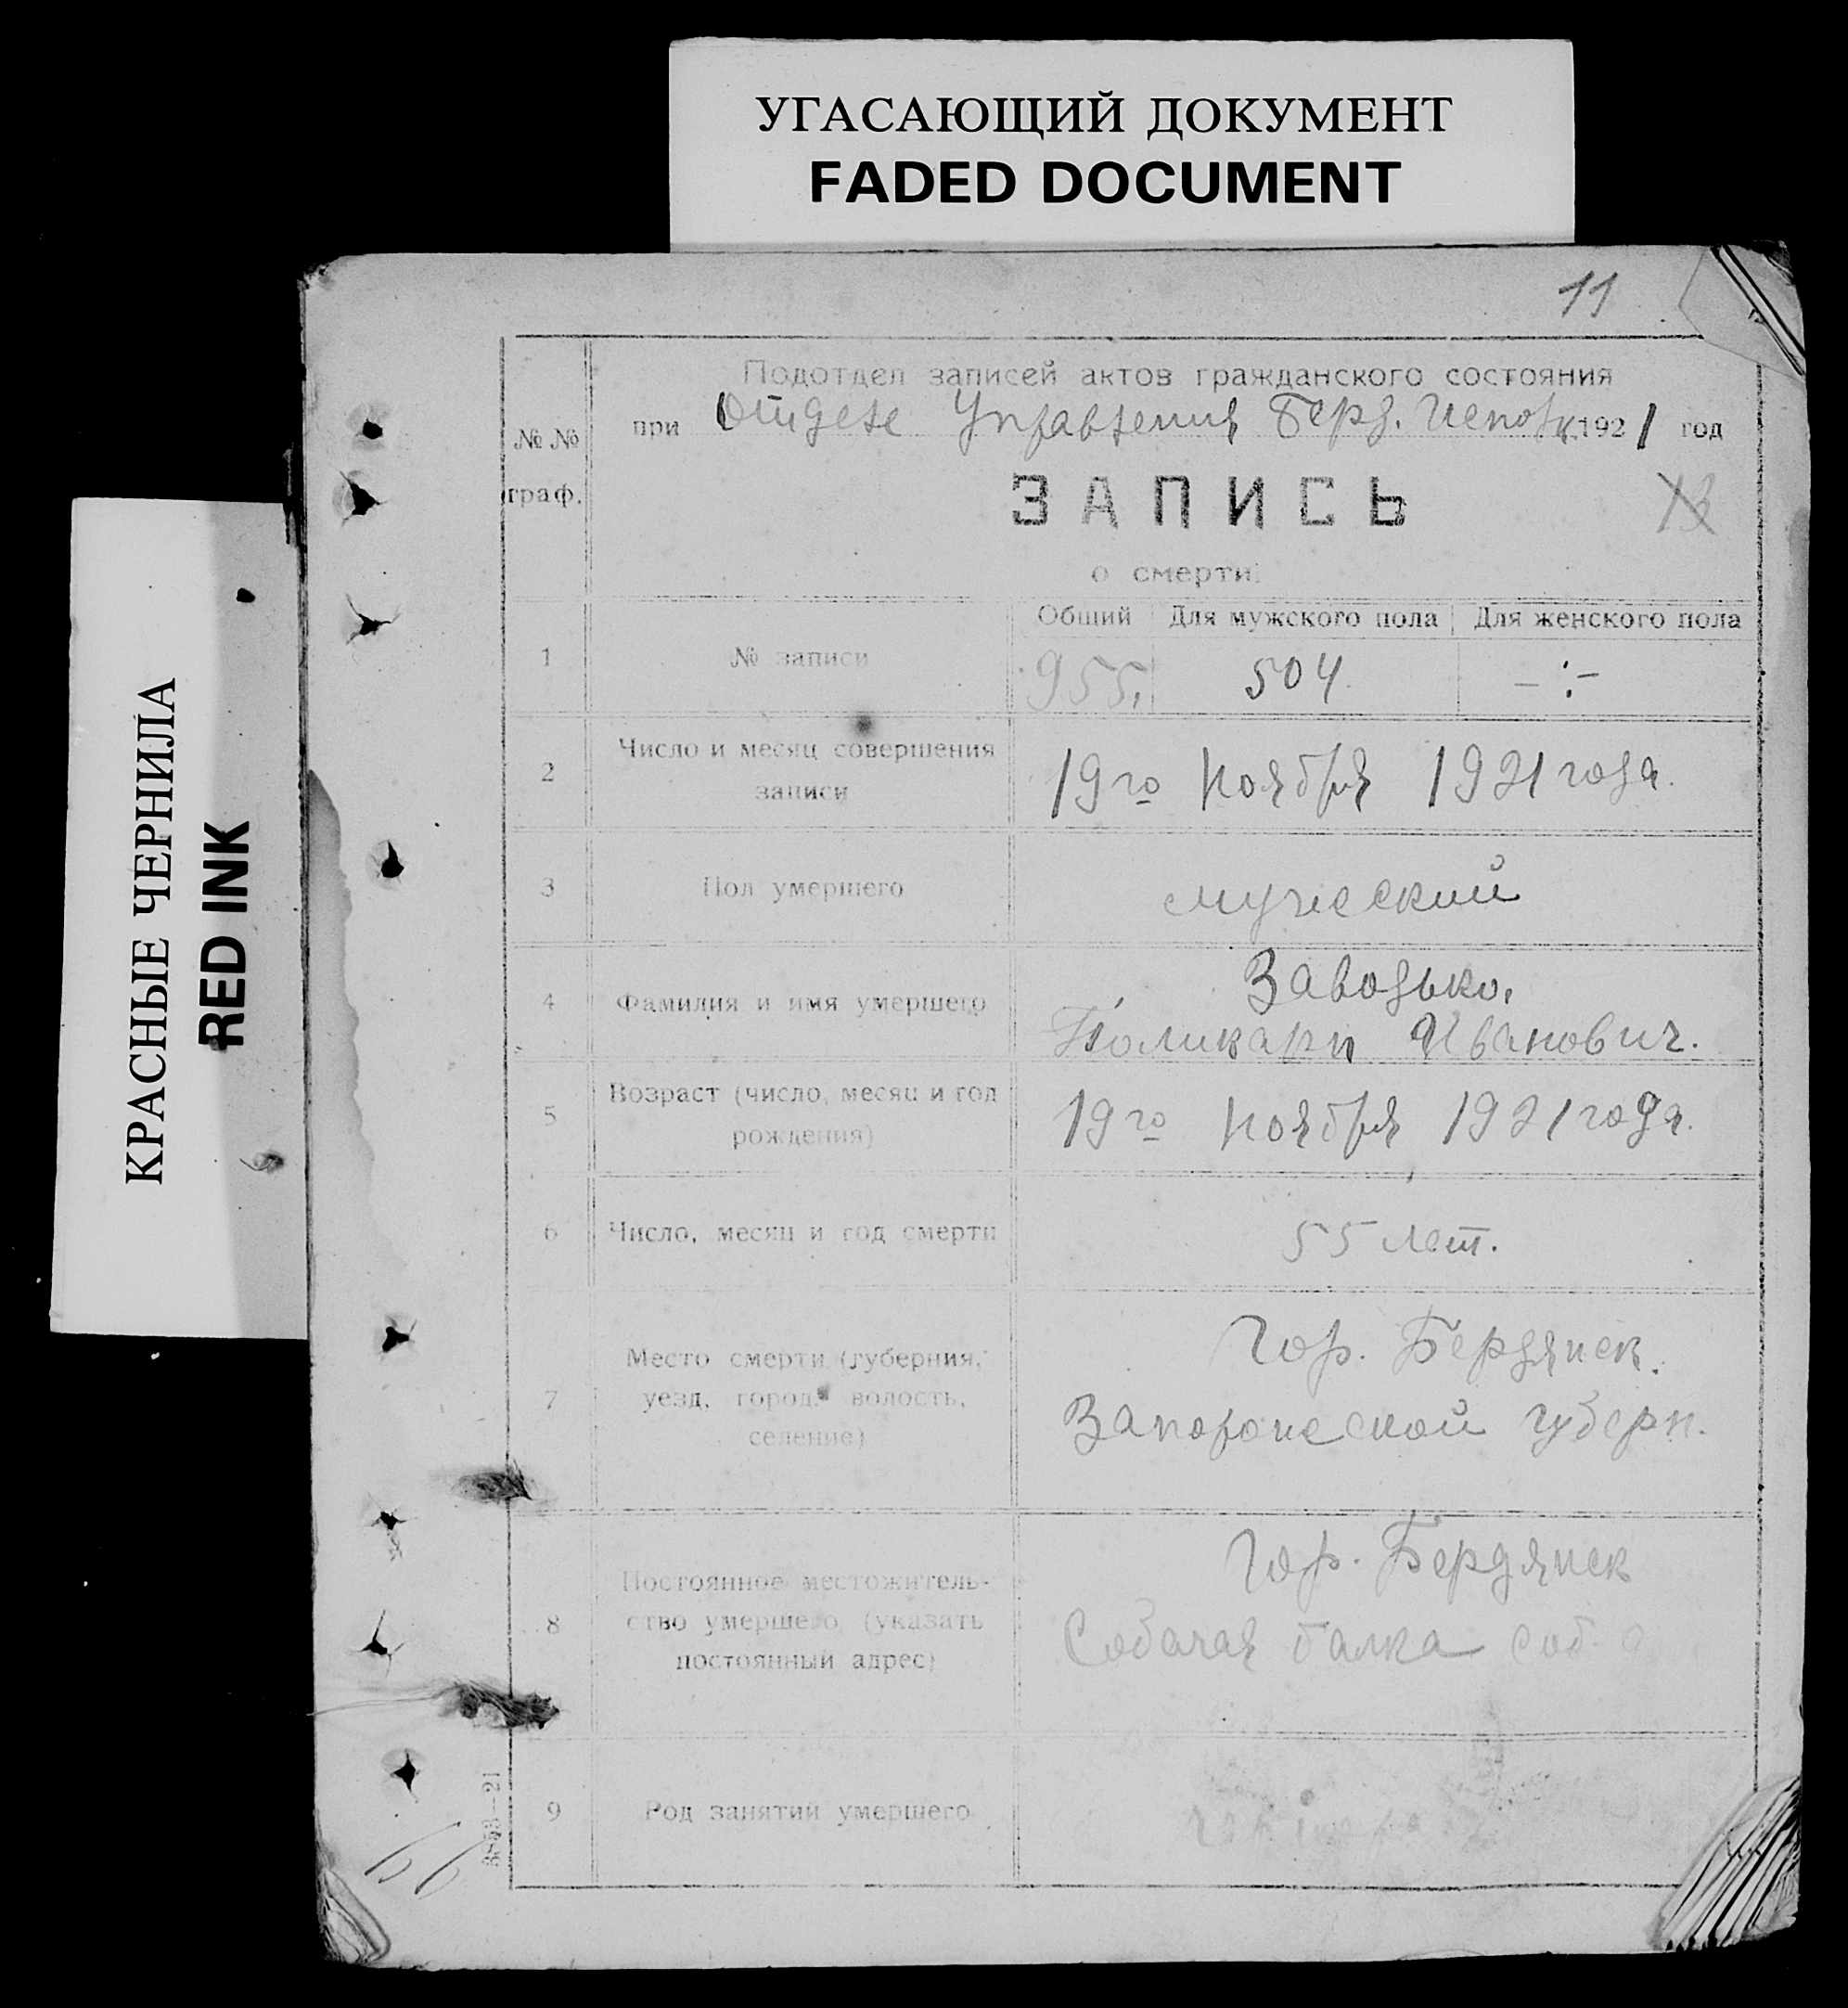 УГАСАЮЩИЙ ДОКУМЕНТ
FADED DOCUMENT
КРАСНЫЕ ЧЕРНИЛА
RED INK
11
Подотдел записей актов гражданского состояния
при Отделе Управления Берд. Исполк. 1921 год
№№
граф.
ЗАПИСЬ
13
о смерти.
Общий Для мужского пола Для женского пола
1 № записи 955. 504. -:-
2 Число и месяц совершения
записи
19го Ноября 1921 года.
3 Пол умершего мужеский
4 Фамилия и имя умершего
Заводько.
Поликарп Иванович.
5 Возраст (число, месяц и год
рождения)
19го Ноября 1921 года.
6 Число, месяц и год смерти 55 лет.
7 Место смерти (губерния,
уезд, город, волость,
селение)
Гор. Бердянск.
Запорожеской губерн.
8 Постоянное местожитель-
ство умершего (указать
постоянный адрес)
Гор. Бердянск
Собачая балка соб.
9 Род занятий умершего
3853—21